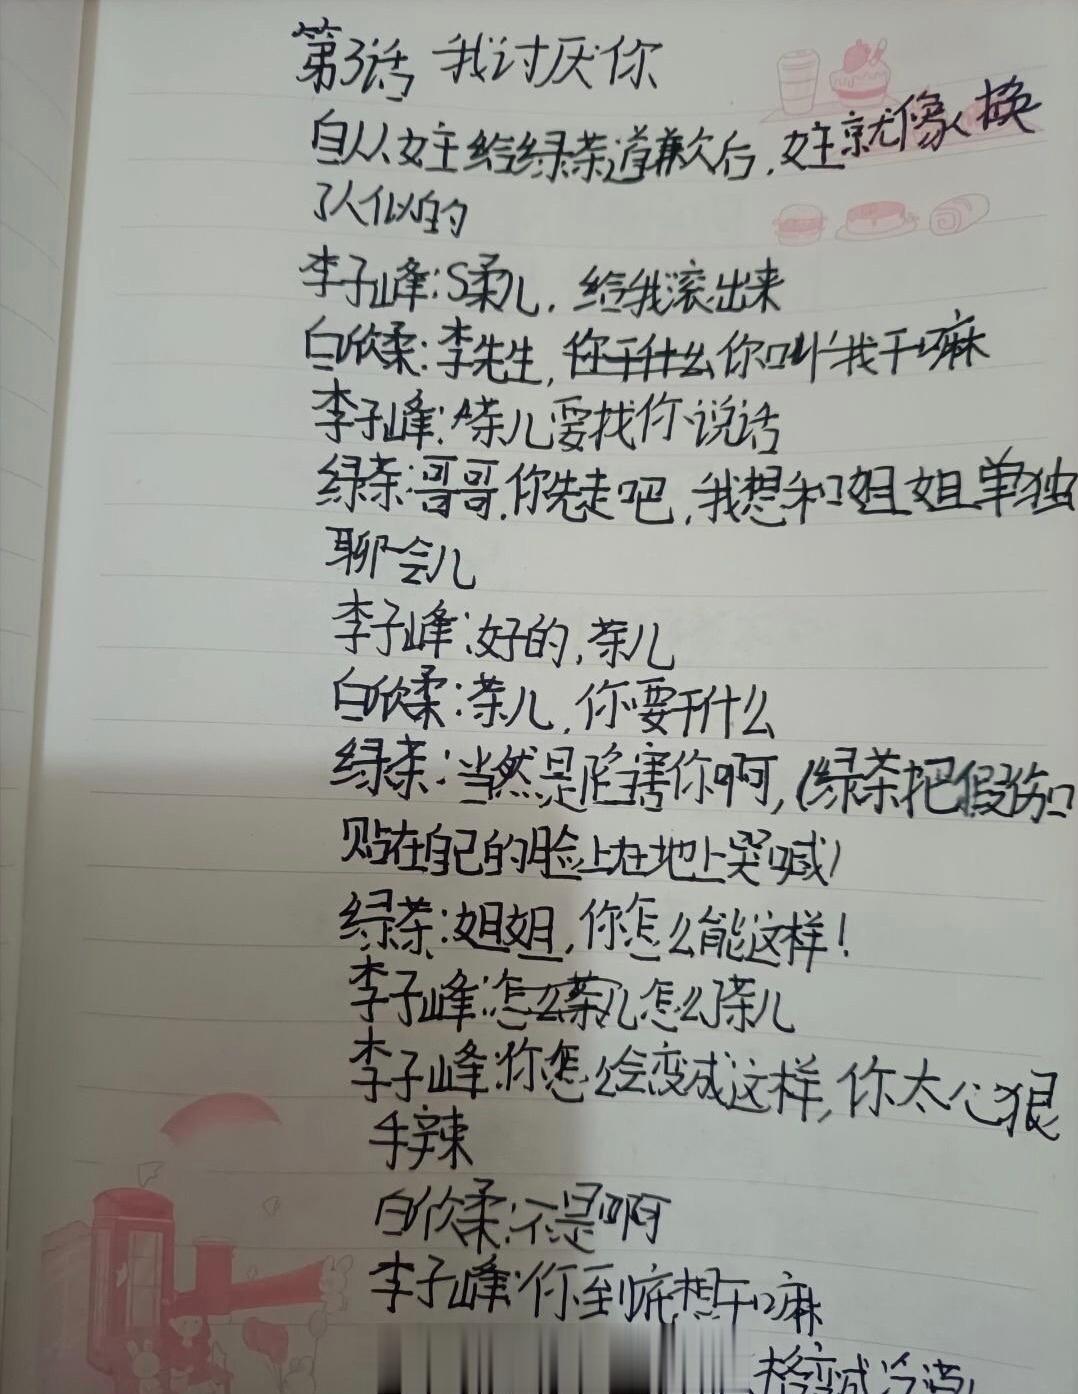 第3话 我讨厌你
自从女主给绿茶道歉后,女主就像人换
了人似的
李子峰:S柔儿,给我滚出来
白欣柔:李先生,你干什么你叫我干嘛
李子峰:A茶儿要找你说话
绿茶:哥哥,你先走吧,我想和姐姐单独
聊会儿
李子峰:好的,茶儿
白欣柔:茶儿,你要干什么
绿茶:当然是陷害你啊,(绿茶把假伤口
贴在自己的脸上在地上哭喊)
绿茶:姐姐,你怎么能这样!
李子峰:怎么茶儿怎么了茶儿
李子峰:你怎么会变成这样,你太心狠
手辣
白欣柔:不是啊
李子峰:你到底想干嘛